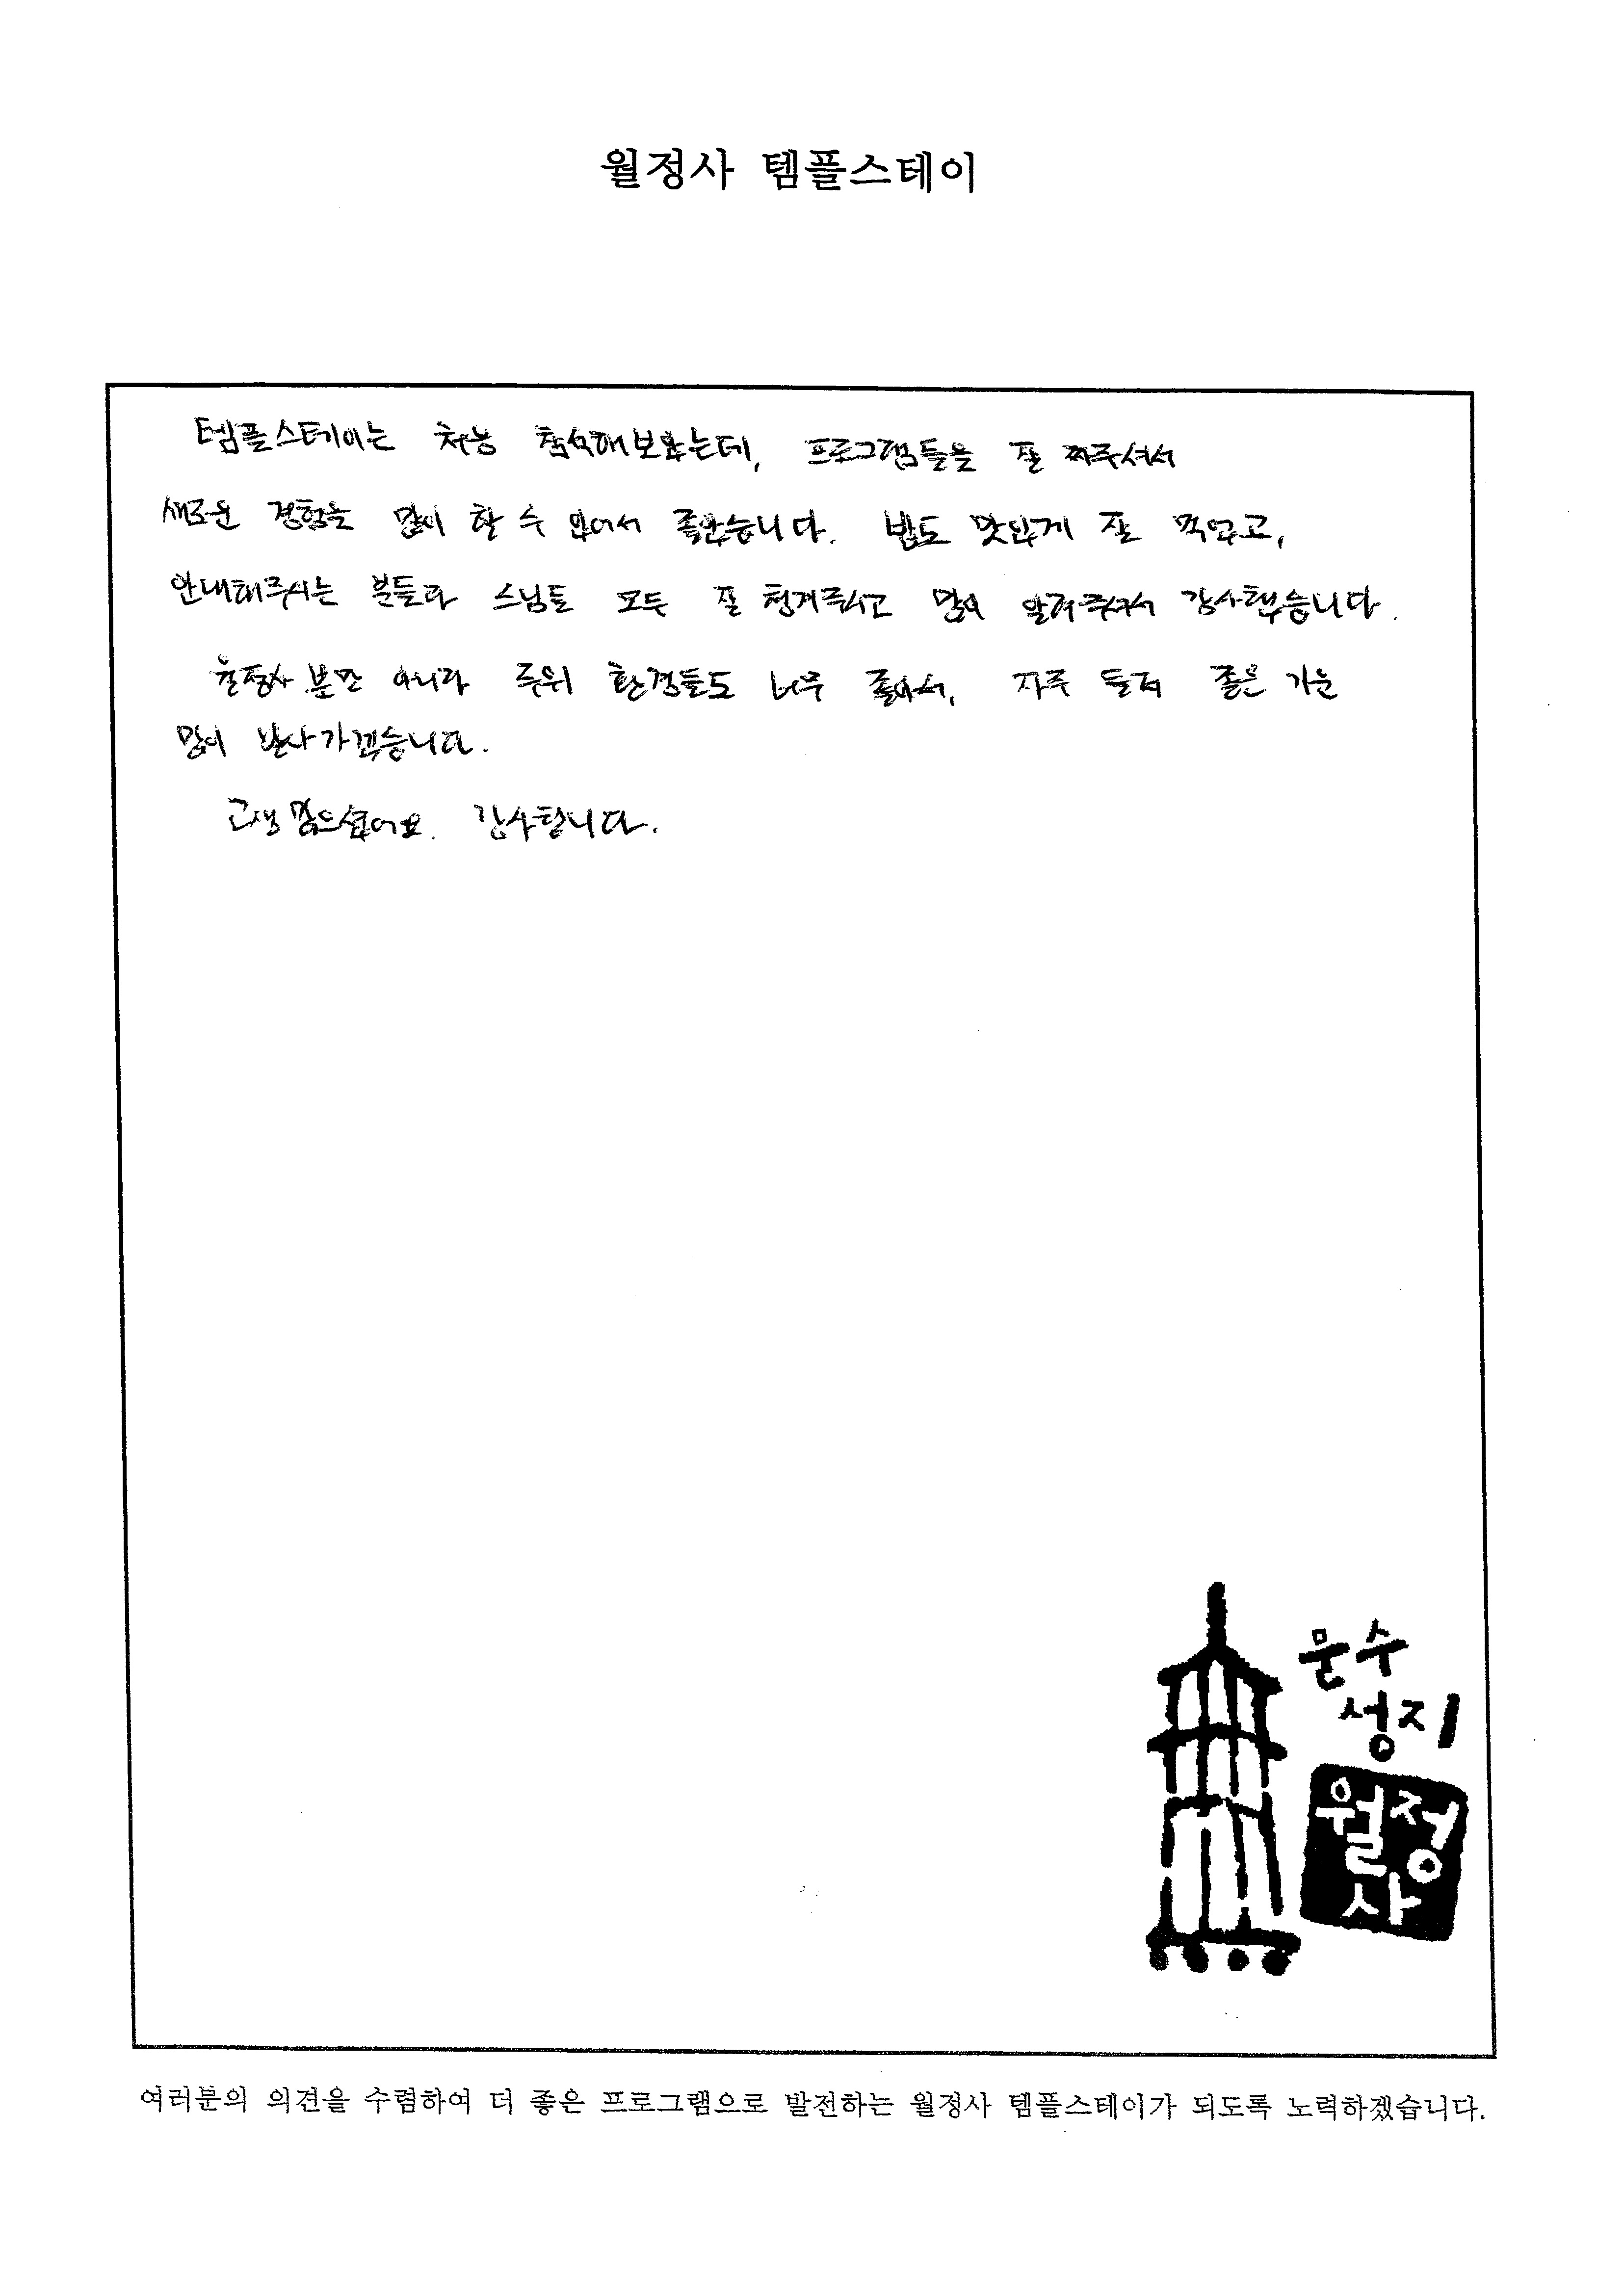 월정사 템플스테이
템플스테이는 처음 참석해보았는데, 프로그램들을 잘 짜주셔서
새로운 경험을 많이 할 수 있어서 좋았습니다. 밥도 맛있게 잘 먹었고,
안내해주시는 분들과 스님들 모두 잘 챙겨주시고 많이 알려주셔서 감사했습니다.
월정사 뿐만 아니라 주위 환경들도 너무 좋아서, 자주 들려 좋은 기운
많이 받아가겠습니다.
고생 많으셨어요. 감사합니다.
문수
성지
월정
사
여러분의 의견을 수렴하여 더 좋은 프로그램으로 발전하는 월정사 템플스테이가 되도록 노력하겠습니다.